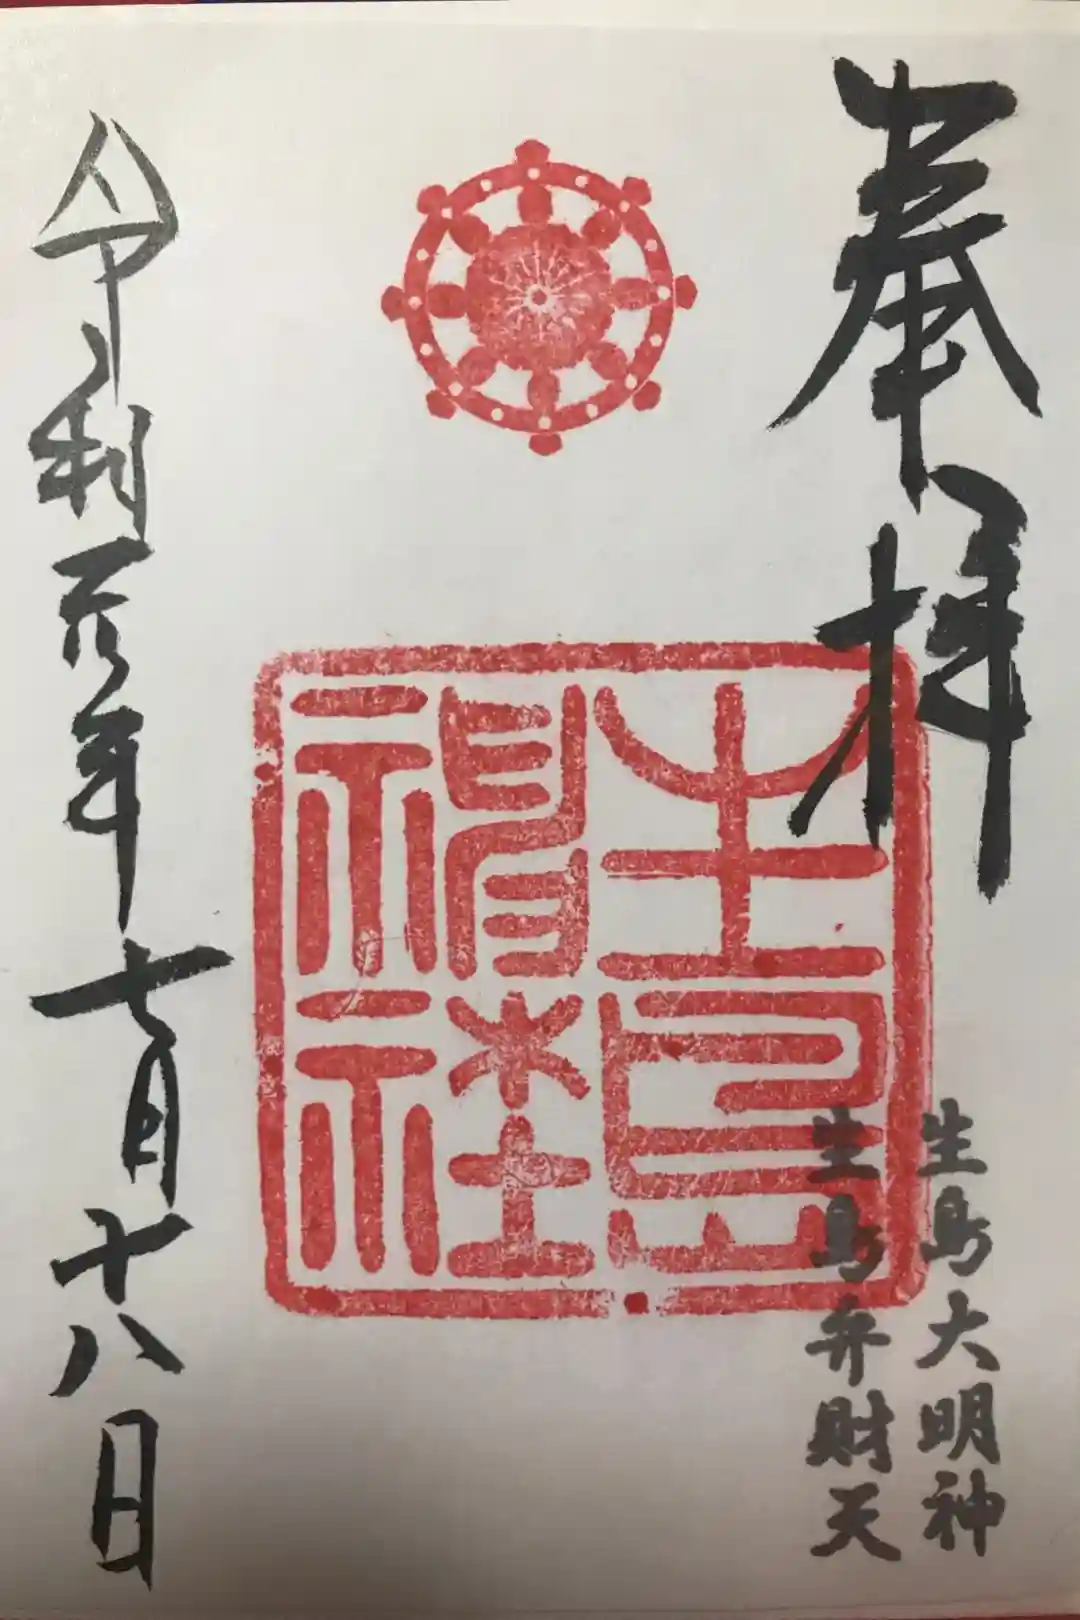 奉拝
生島大明神
生島弁財天
生島
神社
令和元年七月十八日